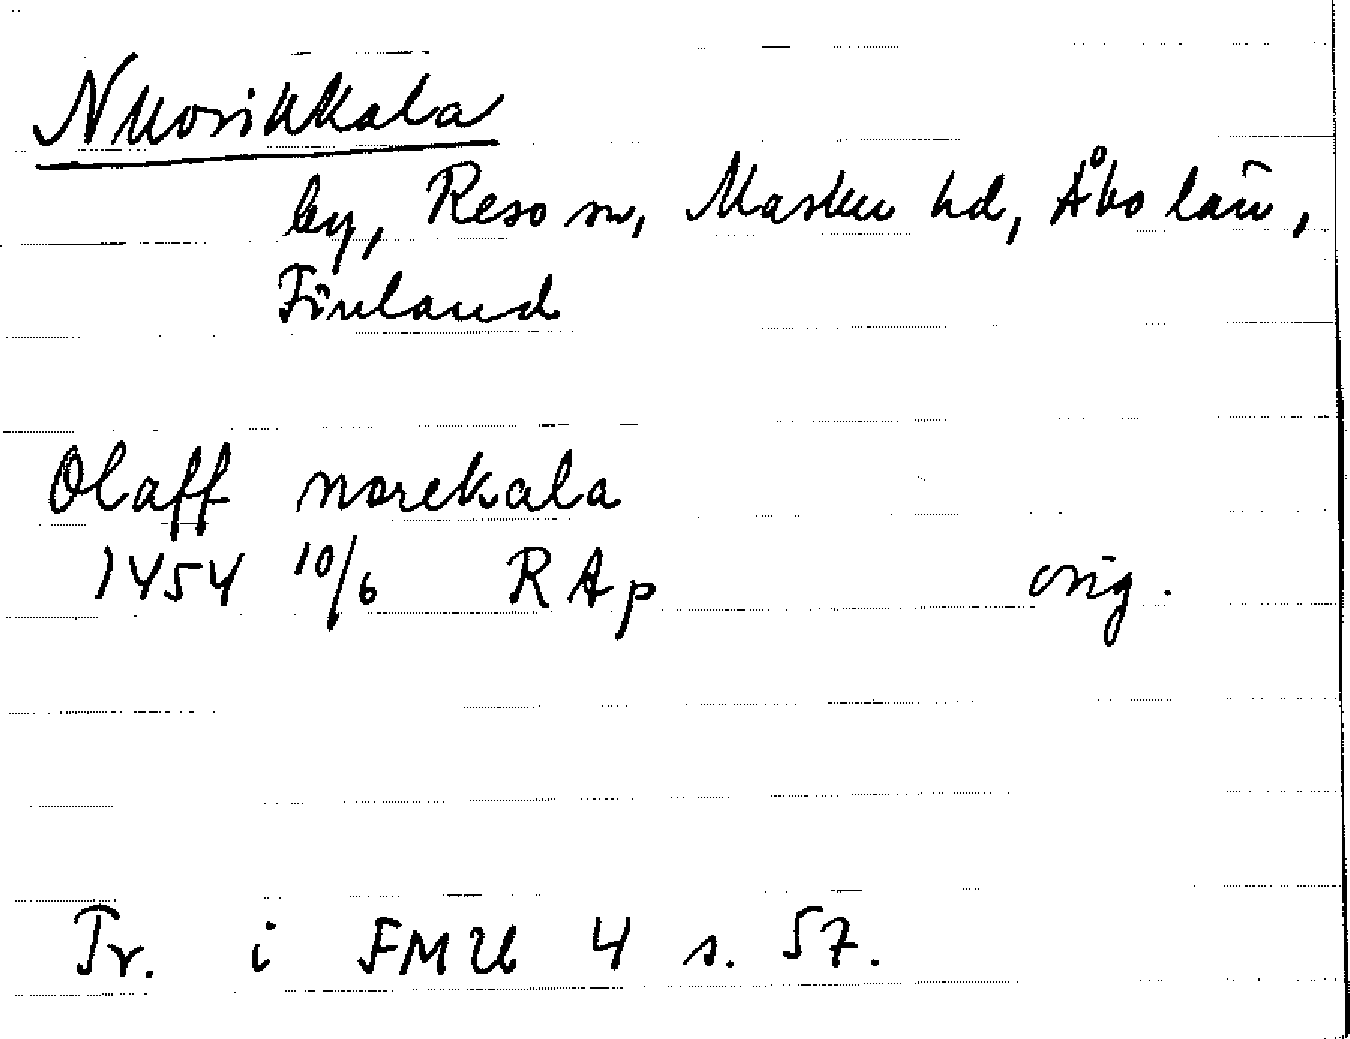 Nuorikkala
by, Reso sn, Masku hd, Åbo län,
Finland
Olaff norekala
1454 10/6 RAp orig.
Tr. i FMU 4 s. 57.